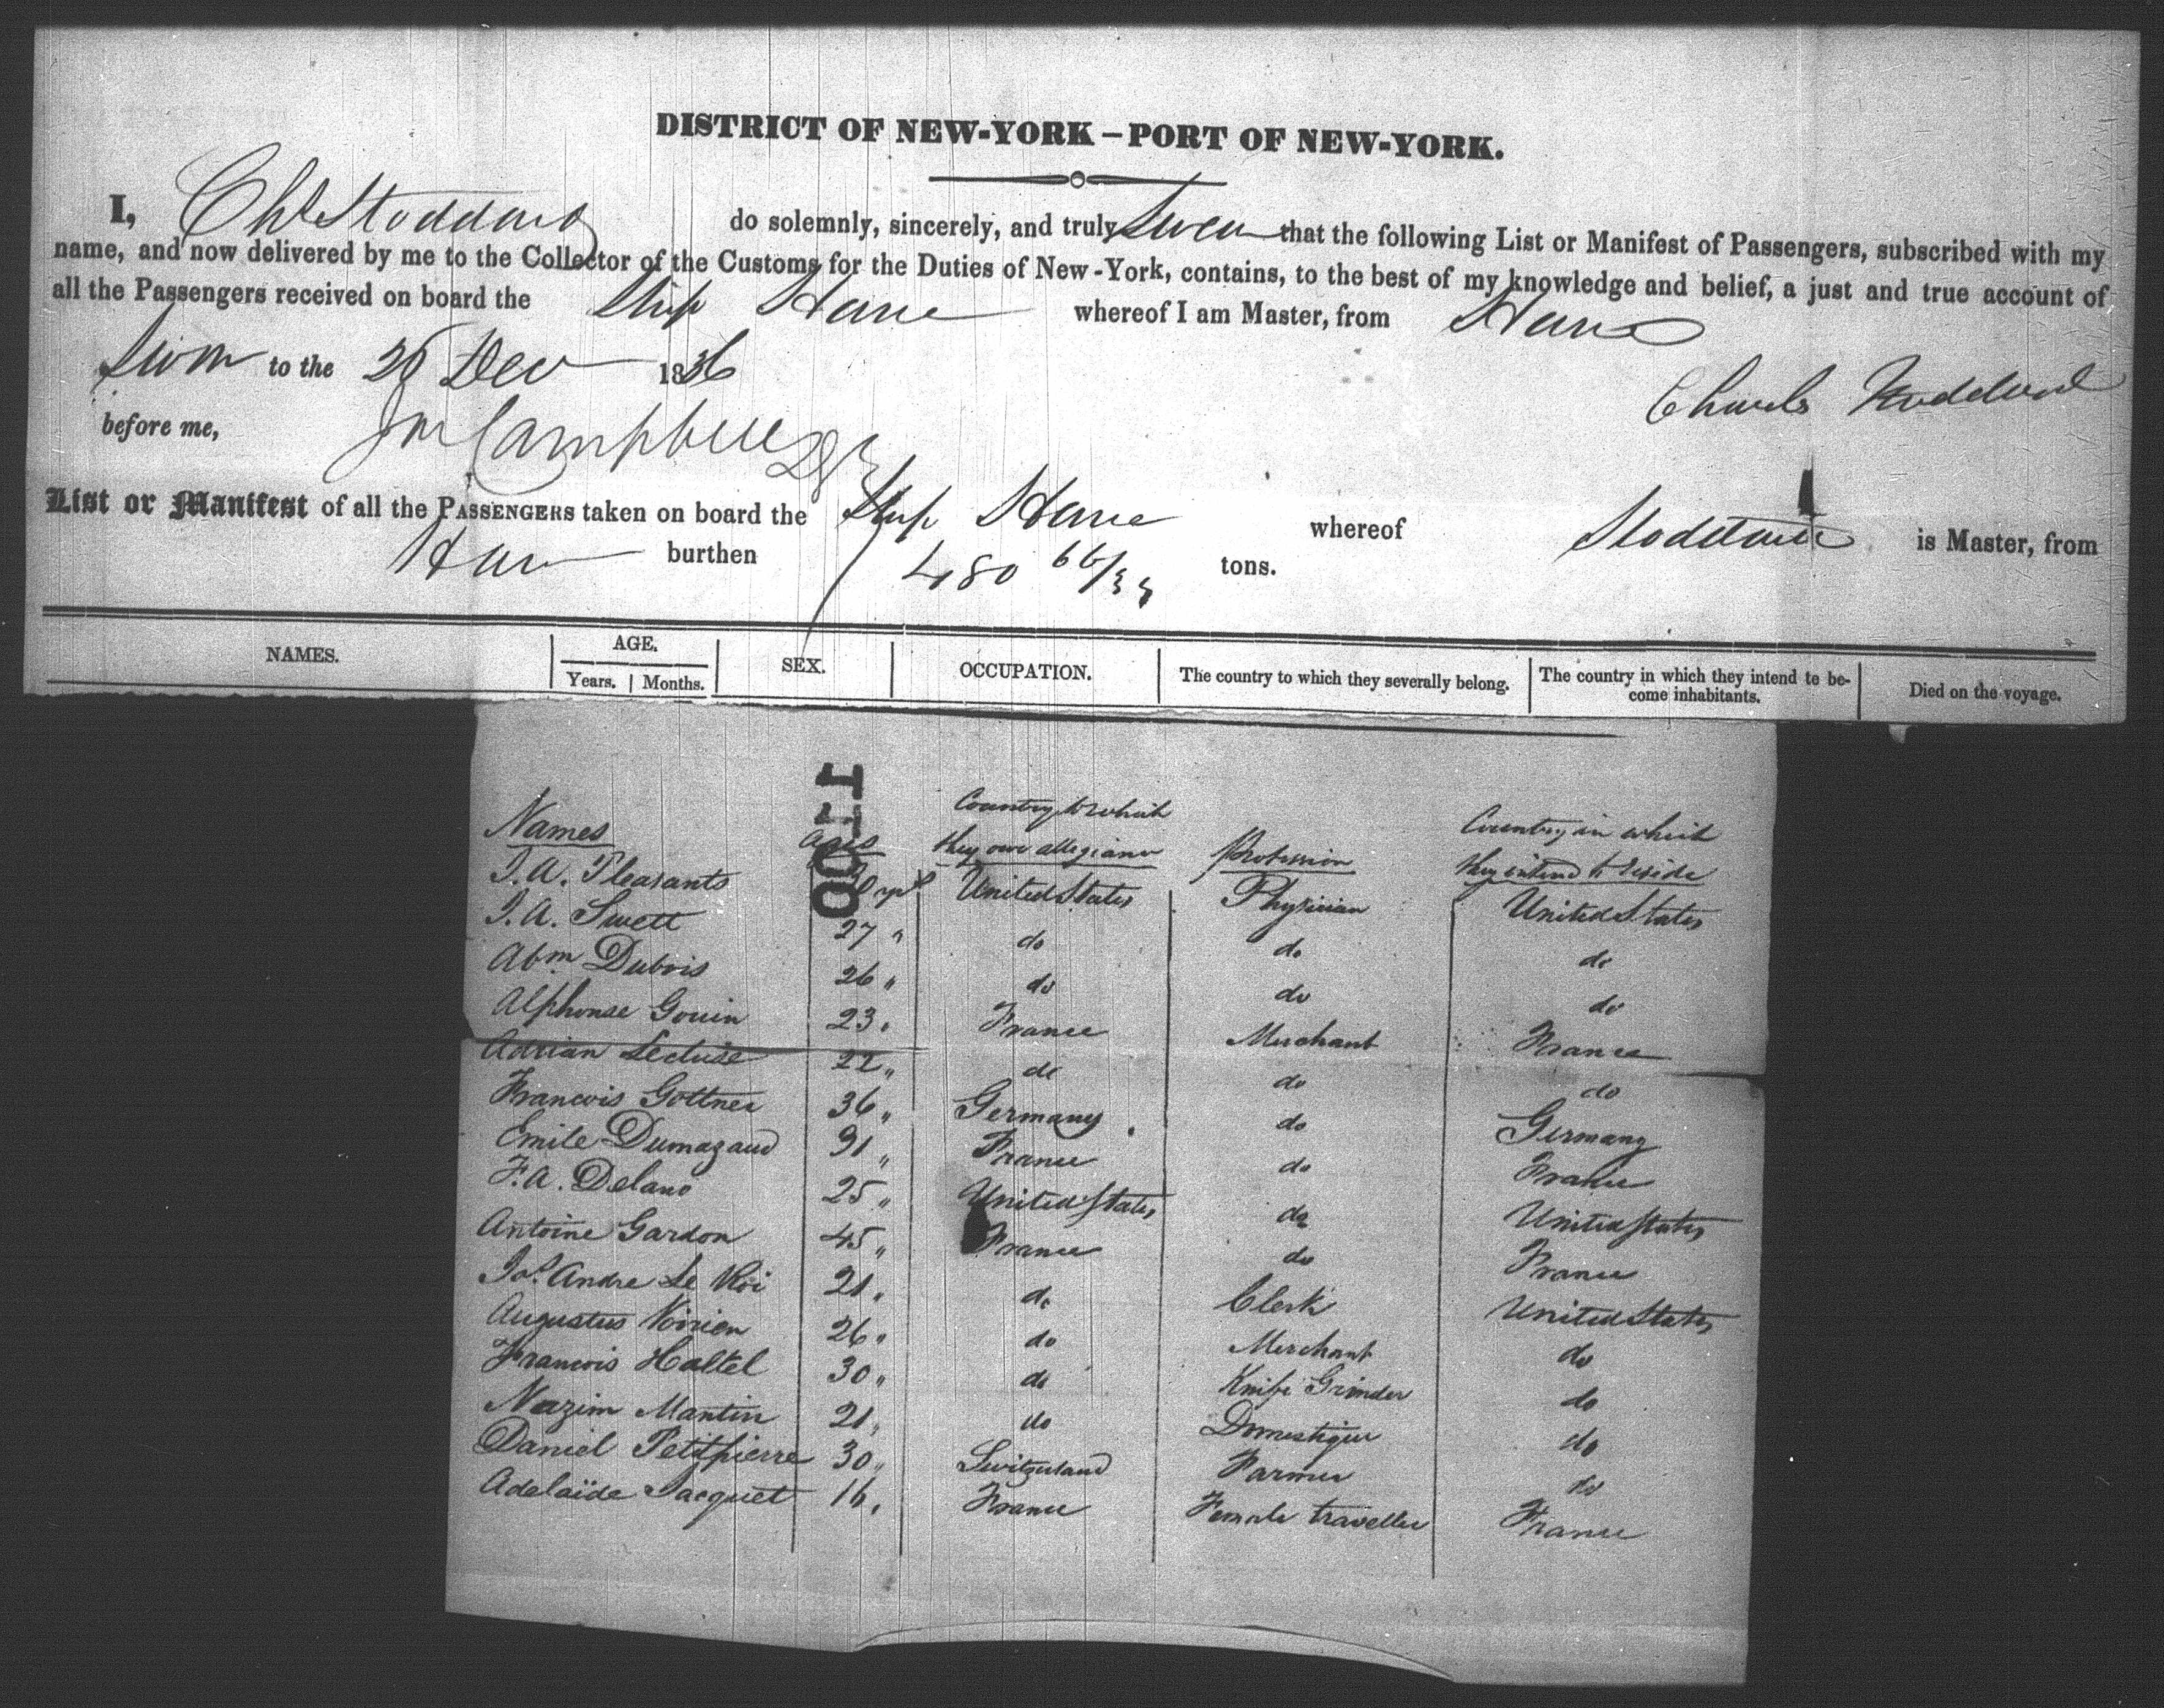 DISTRICT OF NEW-YORK – PORT OF NEW-YORK.
I, Chs Stoddard do solemnly, sincerely, and truly swear that the following List or Manifest of Passengers, subscribed with my
name, and now delivered by me to the Collector of the Customs for the Duties of New-York, contains, to the best of my knowledge and belief, a just and true account of
all the Passengers received on board the Ship Havre whereof I am Master, from Havre
Sworn to the 26 Dec 1836
Charles Stoddard
before me, Campbell
List or Manifest of all the PASSENGERS taken on board the Ship Havre whereof Stoddard is Master, from
Havre burthen 480 tons.
NAMES. AGE. SEX. OCCUPATION. The country to which they severally belong. The country in which they intend to be- Died on the voyage.
Years. Months. come inhabitants.
0011
Names Ages Country to which they owe allegiance Profession Country in which they intend to reside
J. A. Pleasants United States Physician United States
J. A. Swett 27 " do do do
Abm Dubois 26 " do do do
Alphonse Gouin 23 " France Merchant France
Adrian Lecluse 22 " do do do
Francois Gottner 36 " Germany do Germany
Emile Dumazaud 31 " France do France
F. A. Delano 25 " United States do United States
Antoine Gardon 45 " France do France
Jos. Andre Le Roi 21 " do Clerk United States
Augustus Voirien 26 " do Merchant do
Francois Haltel 30 " do Knife Grinder do
Nazim Mantin 21 " do Domestique do
Daniel Petitpierre 30 " Switzerland Farmer do
Adelaïde Jacquet 16 " France Female traveller France